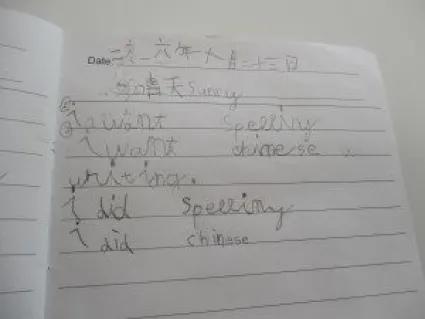 Date 二零一六年十月二十三日
晴天 sunny
I want spelling
I want chinese
writing.
I did spelling
I did chinese